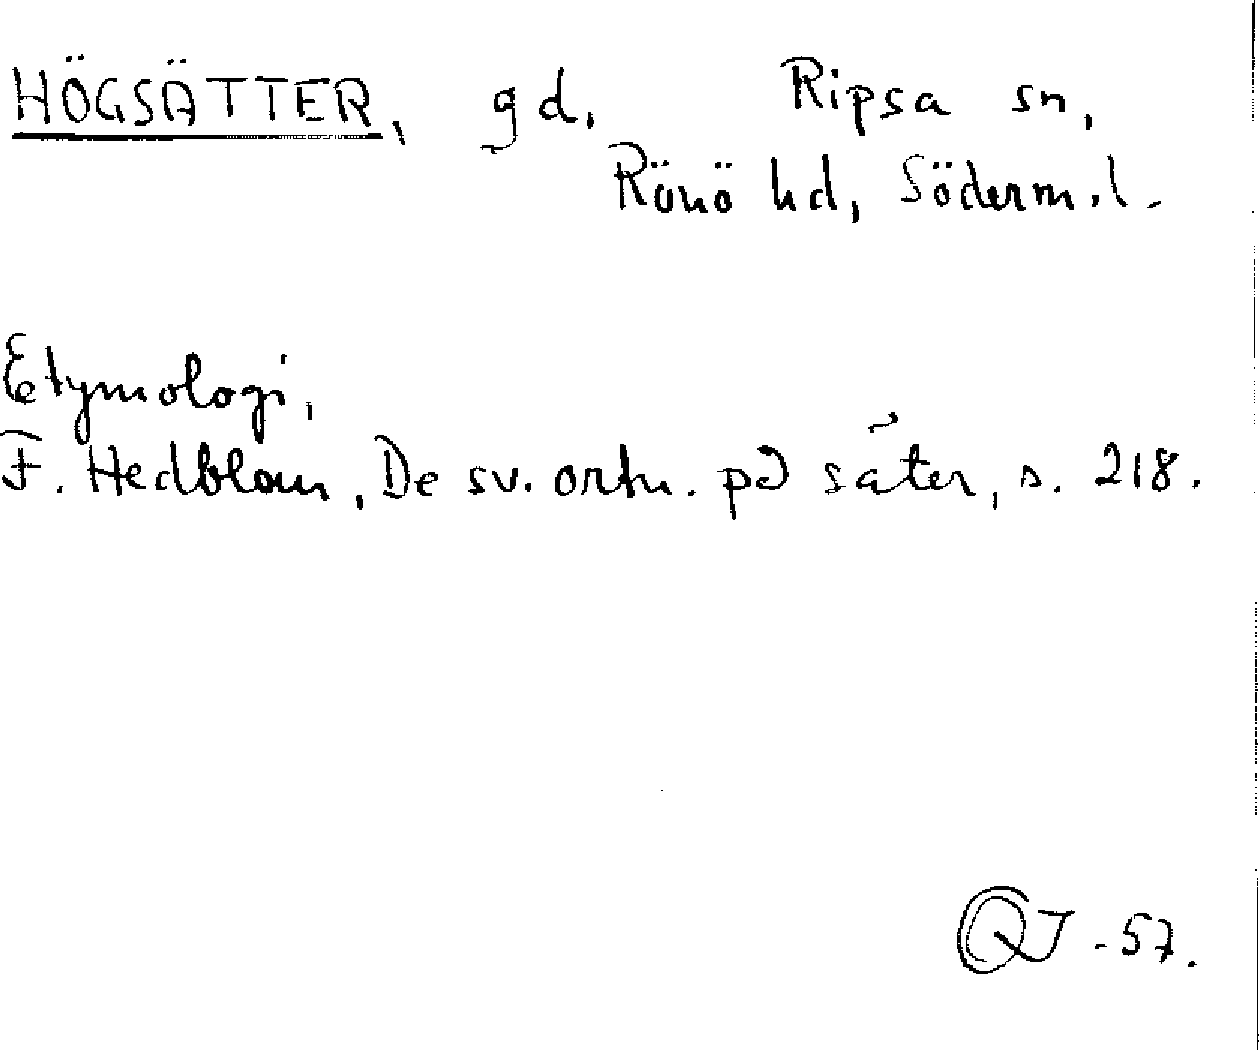 HÖGSÄTTER, gd, Ripsa sn,
Rönö hd, Söderm.l.
Etymologi,
F. Hedblom, De sv. ortn. på säter, s. 218.
QJ -57.